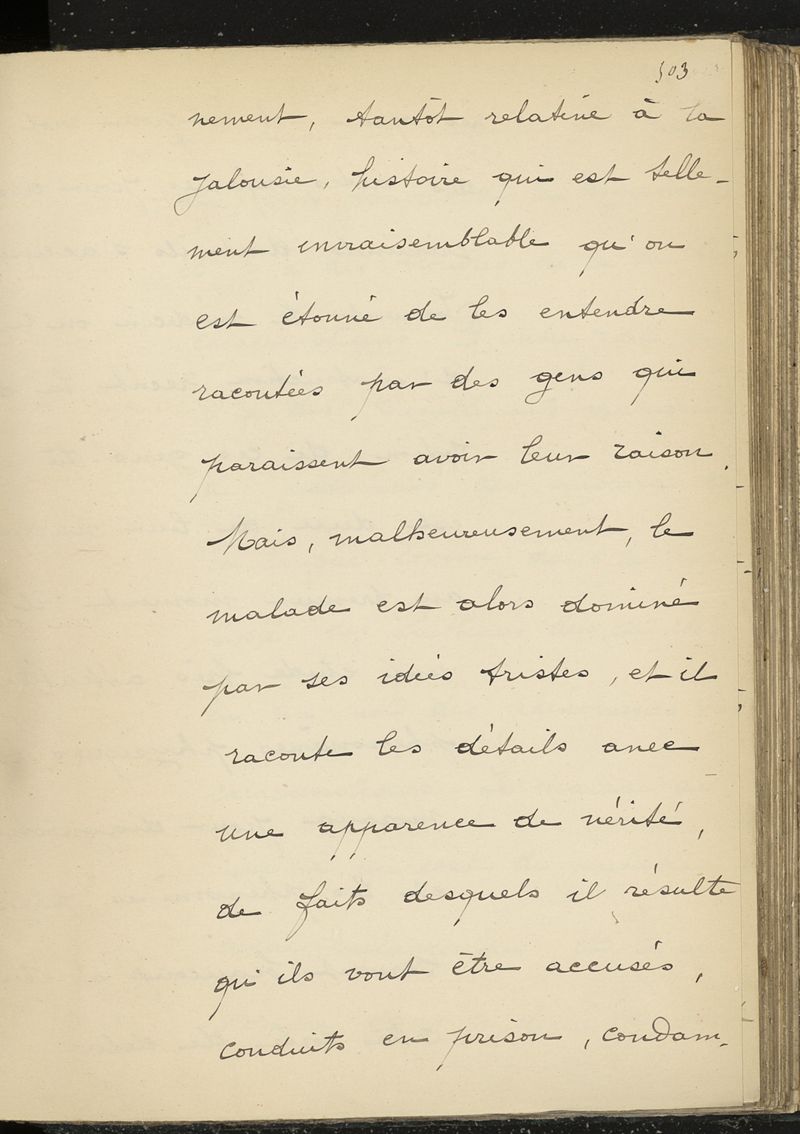 503
nement, tantôt relative à la
jalousie, histoire qui est telle-
ment invraisemblable qu'on
est étonné de les entendre
racontées par des gens qui
paraissent avoir leur raison.
Mais, malheureusement, le
malade est alors dominé
par ses idées tristes, et il
raconte les détails avec
une apparence de vérité,
de faits desquels il résulte
qu'ils vont être accusés,
conduits en prison, condam-